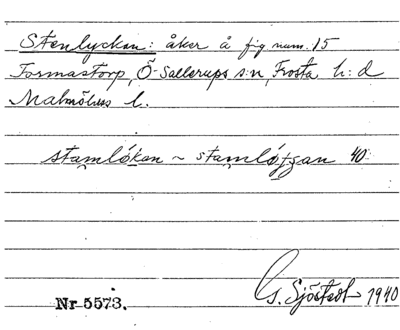 Stenlyckan: åker å fig. num. 15
Tormastorp, Ö-Sallerups s:n, Frosta h:d
Malmöhus l.
stamlókan ~ stamlóʒgan 40
Nr 5573.
G. Sjöstedt 1940